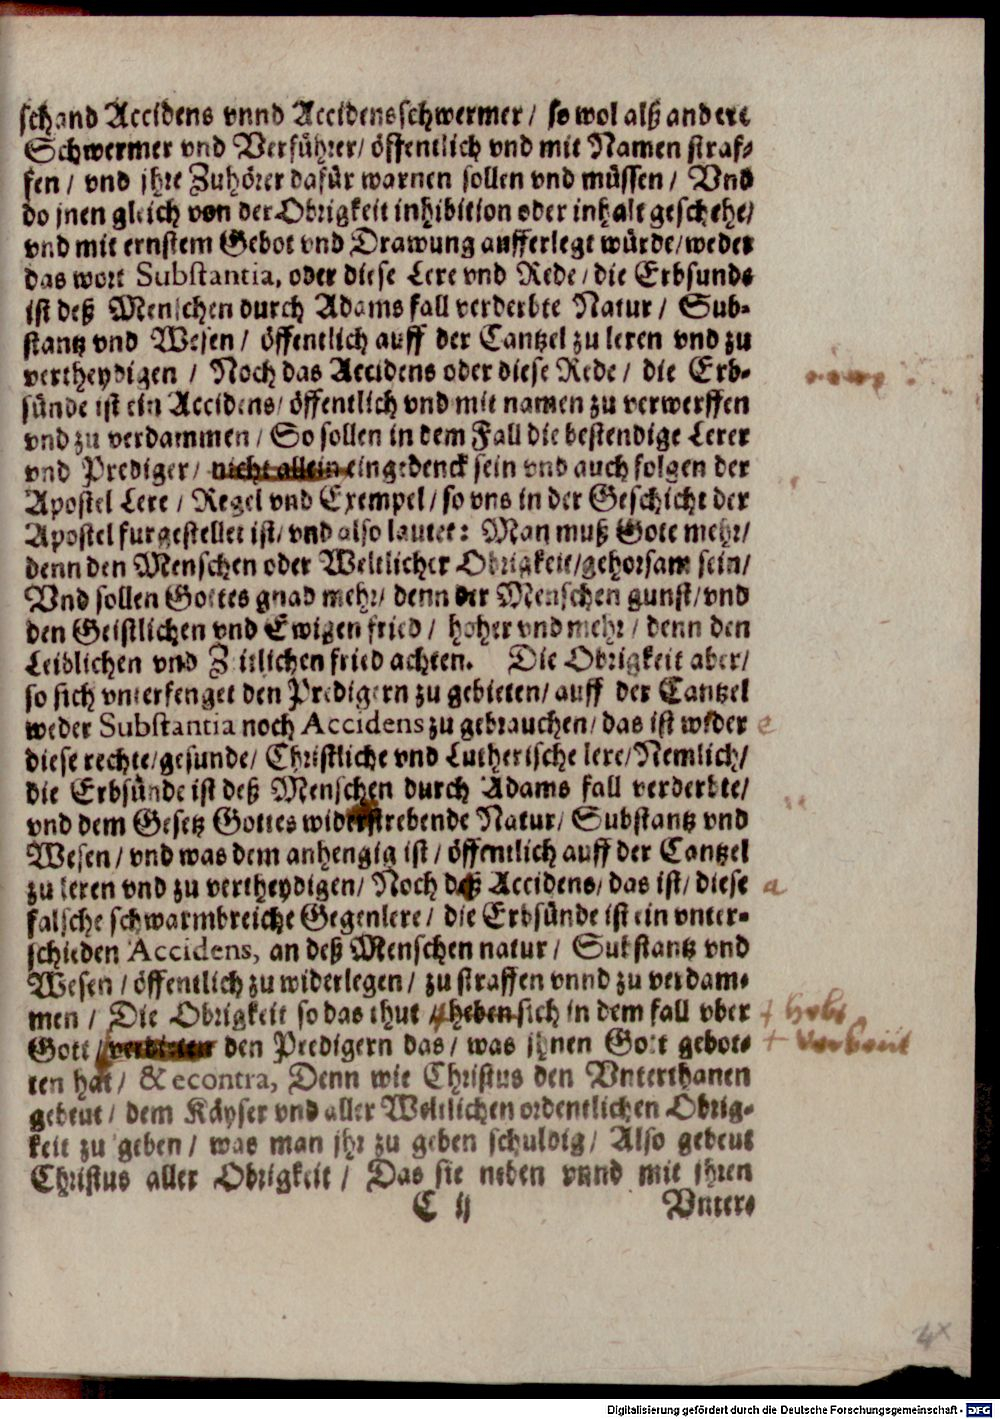 schand Accidens vnnd Accidensschwermer/ so wol alß andere
Schwermer vnd Verführer/ öffentlich vnd mit Namen straf-
fen/ vnd jhre Zuhörer dafür warnen sollen vnd müssen/ Vnd
do jnen gleich von der Obrigkeit inhibition oder inhalt geschehe/
vnd mit ernstem Gebot vnd Drawung aufferlegt würde/ weder
das wort Substantia, oder diese Lere vnd Rede/ die Erbsunde
ist deß Menschen durch Adams fall verderbte Natur/ Sub-
stantz vnd Wesen/ öffentlich auff der Cantzel zu leren vnd zu
vertheydigen/ Noch das Accidens oder diese Rede/ die Erb-
sünde ist ein Accidens/ öffentlich vnd mit namen zu verwerffen
vnd zu verdammen/ So sollen in dem Fall die bestendige Lerer
vnd Prediger/ nicht allein eingedenck sein vnd auch folgen der
Apostel Lere/ Regel vnd Exempel/ so vns in der Geschicht der
Apostel furgestellet ist/ vnd also lautet: Man muß Gott mehr/
denn den Menschen oder Weltlicher Obrigkeit/ gehorsam sein/
Vnd sollen Gottes gnad mehr/ denn der Menschen gunst/ vnd
den Geistlichen vnd Ewigen fried/ hoher vnd mehr/ denn den
Leiblichen vnd Zeitlichen fried achten. Die Obrigkeit aber/
so sich vnterfenget den Predigern zu gebieten/ auff der Cantzel
weder Substantia noch Accidens zu gebrauchen/ das ist wider e
diese rechte/ gesunde/ Christliche vnd Lutherische lere/ Nemlich/
die Erbsünde ist deß Menschen durch Adams fall verderbte/
vnd dem Gesetz Gottes widerstrebende Natur/ Substantz vnd
Wesen/ vnd was dem anhengig ist/ öffentlich auff der Cantzel
zu leren vnd zu vertheydigen/ Noch daß Accidens/ das ist/ diese a
falsche schwarmbreiche Gegenlere/ die Erbsünde ist ein vnter-
schieden Accidens, an deß Menschen natur/ Substantz vnd
Wesen/ öffentlich zu widerlegen/ zu straffen vnnd zu verdam-
men/ Die Obrigkeit so das thut/ heben sich in dem fall vber + hebt
Gott/ verbieten den Predigern das/ was jhnen Gott gebot- + verbeut
ten hat/ & econtra, Denn wie Christus den Vnterthanen
gebeut/ dem Käyser vnd aller Weltlichen ordentlichen Obrig-
keit zu geben/ was man jhr zu geben schuldig/ Also gebeut
Christus aller Obrigkeit/ Das sie neben vnnd mit jhren
C ij Vnter-
4x
Digitalisierung gefördert durch die Deutsche Forschungsgemeinschaft - DFG